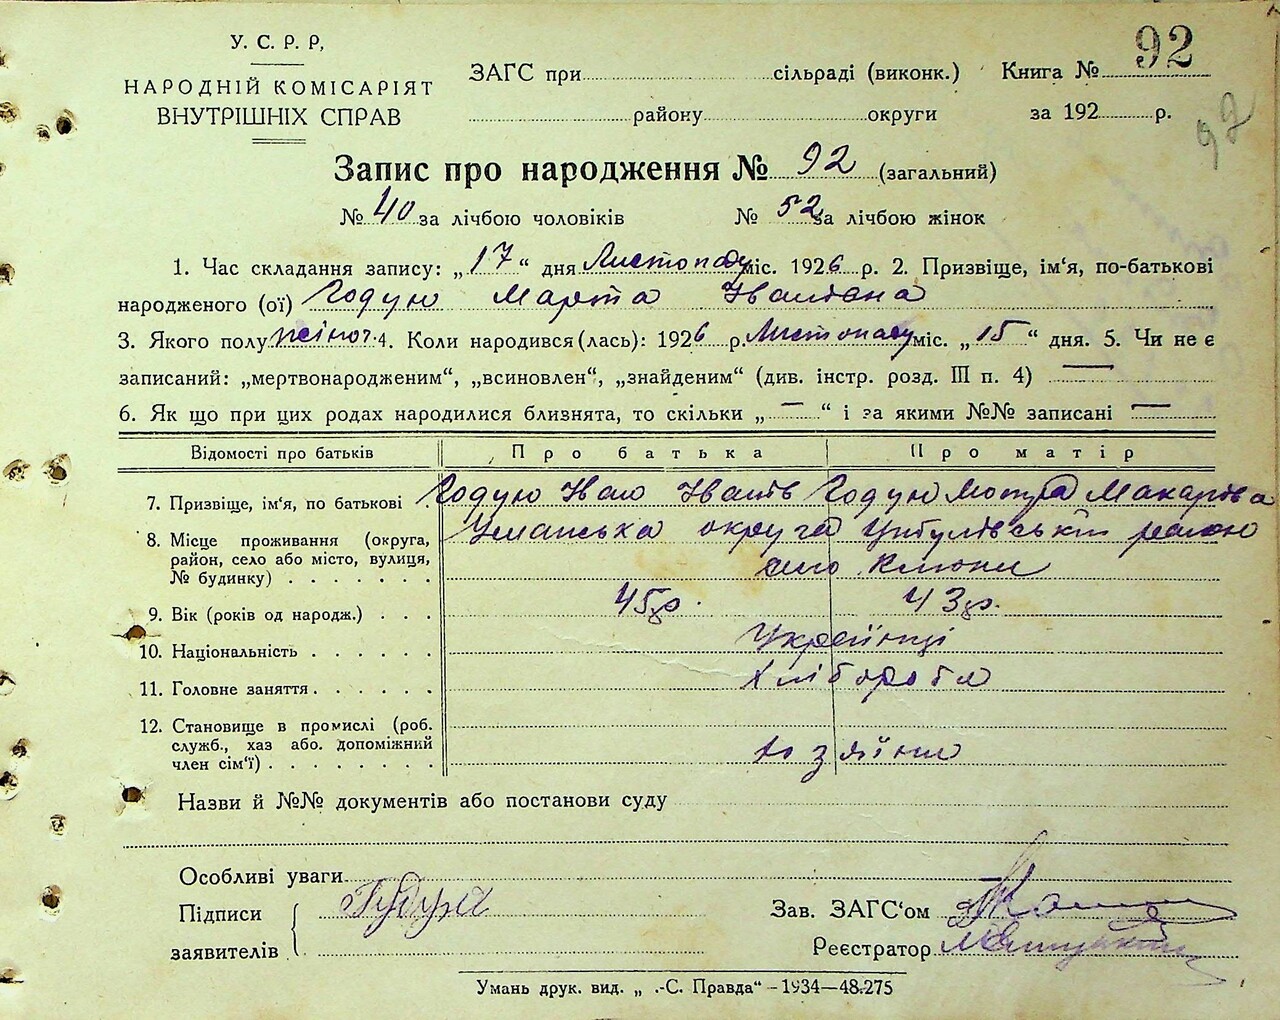 У. С. Р. Р,
НАРОДНІЙ КОМІСАРІЯТ
ВНУТРІШНІХ СПРАВ
ЗАГС при сільраді (виконк.) Книга № 92
району округи за 192 р.
92
Запис про народження № 92 (загальний)
№ 40 за лічбою чоловіків № 52 за лічбою жінок
1. Час складання запису: „17“ дня Листопаду міс. 1926 р. 2. Призвіще, ім‘я, по-батькові
народженого (ої) Годую Марта Іванівна
3. Якого полу жіноч. 4. Коли народився (лась): 1926 р. Листопаду міс. „15“ дня. 5. Чи не є
записаний: „мертвонародженим“, „всиновлен“, „знайденим“ (див. інстр. розд. III п. 4) —
6. Як що при цих родах народилися близнята, то скільки „—“ і за якими №№ записані —
Відомості про батьків Про батька Про матір
7. Призвіще, ім‘я, по батькові . Годую Іван Іванів Годую Мотря Макарівна
8. Місце проживання (округа, Уманська округа Цибулівський район
район, село або місто, вулиця, село
№ будинку) . . . . . . .
9. Вік (років од народж.) . . . 45 р. 43 р.
10. Національність . . . . . . Українці
11. Головне заняття . . . . . . Хлібороби
12. Становище в промислі (роб.
служб., хаз або. допоміжний
член сім‘ї) . . . . . . . . хозяїни
Назви й №№ документів або постанови суду
Особливі уваги
Підписи
заявителів
Зав. ЗАГС‘ом
Реєстратор
Умань друк. вид. „ .-С. Правда“ – 1934—48.275